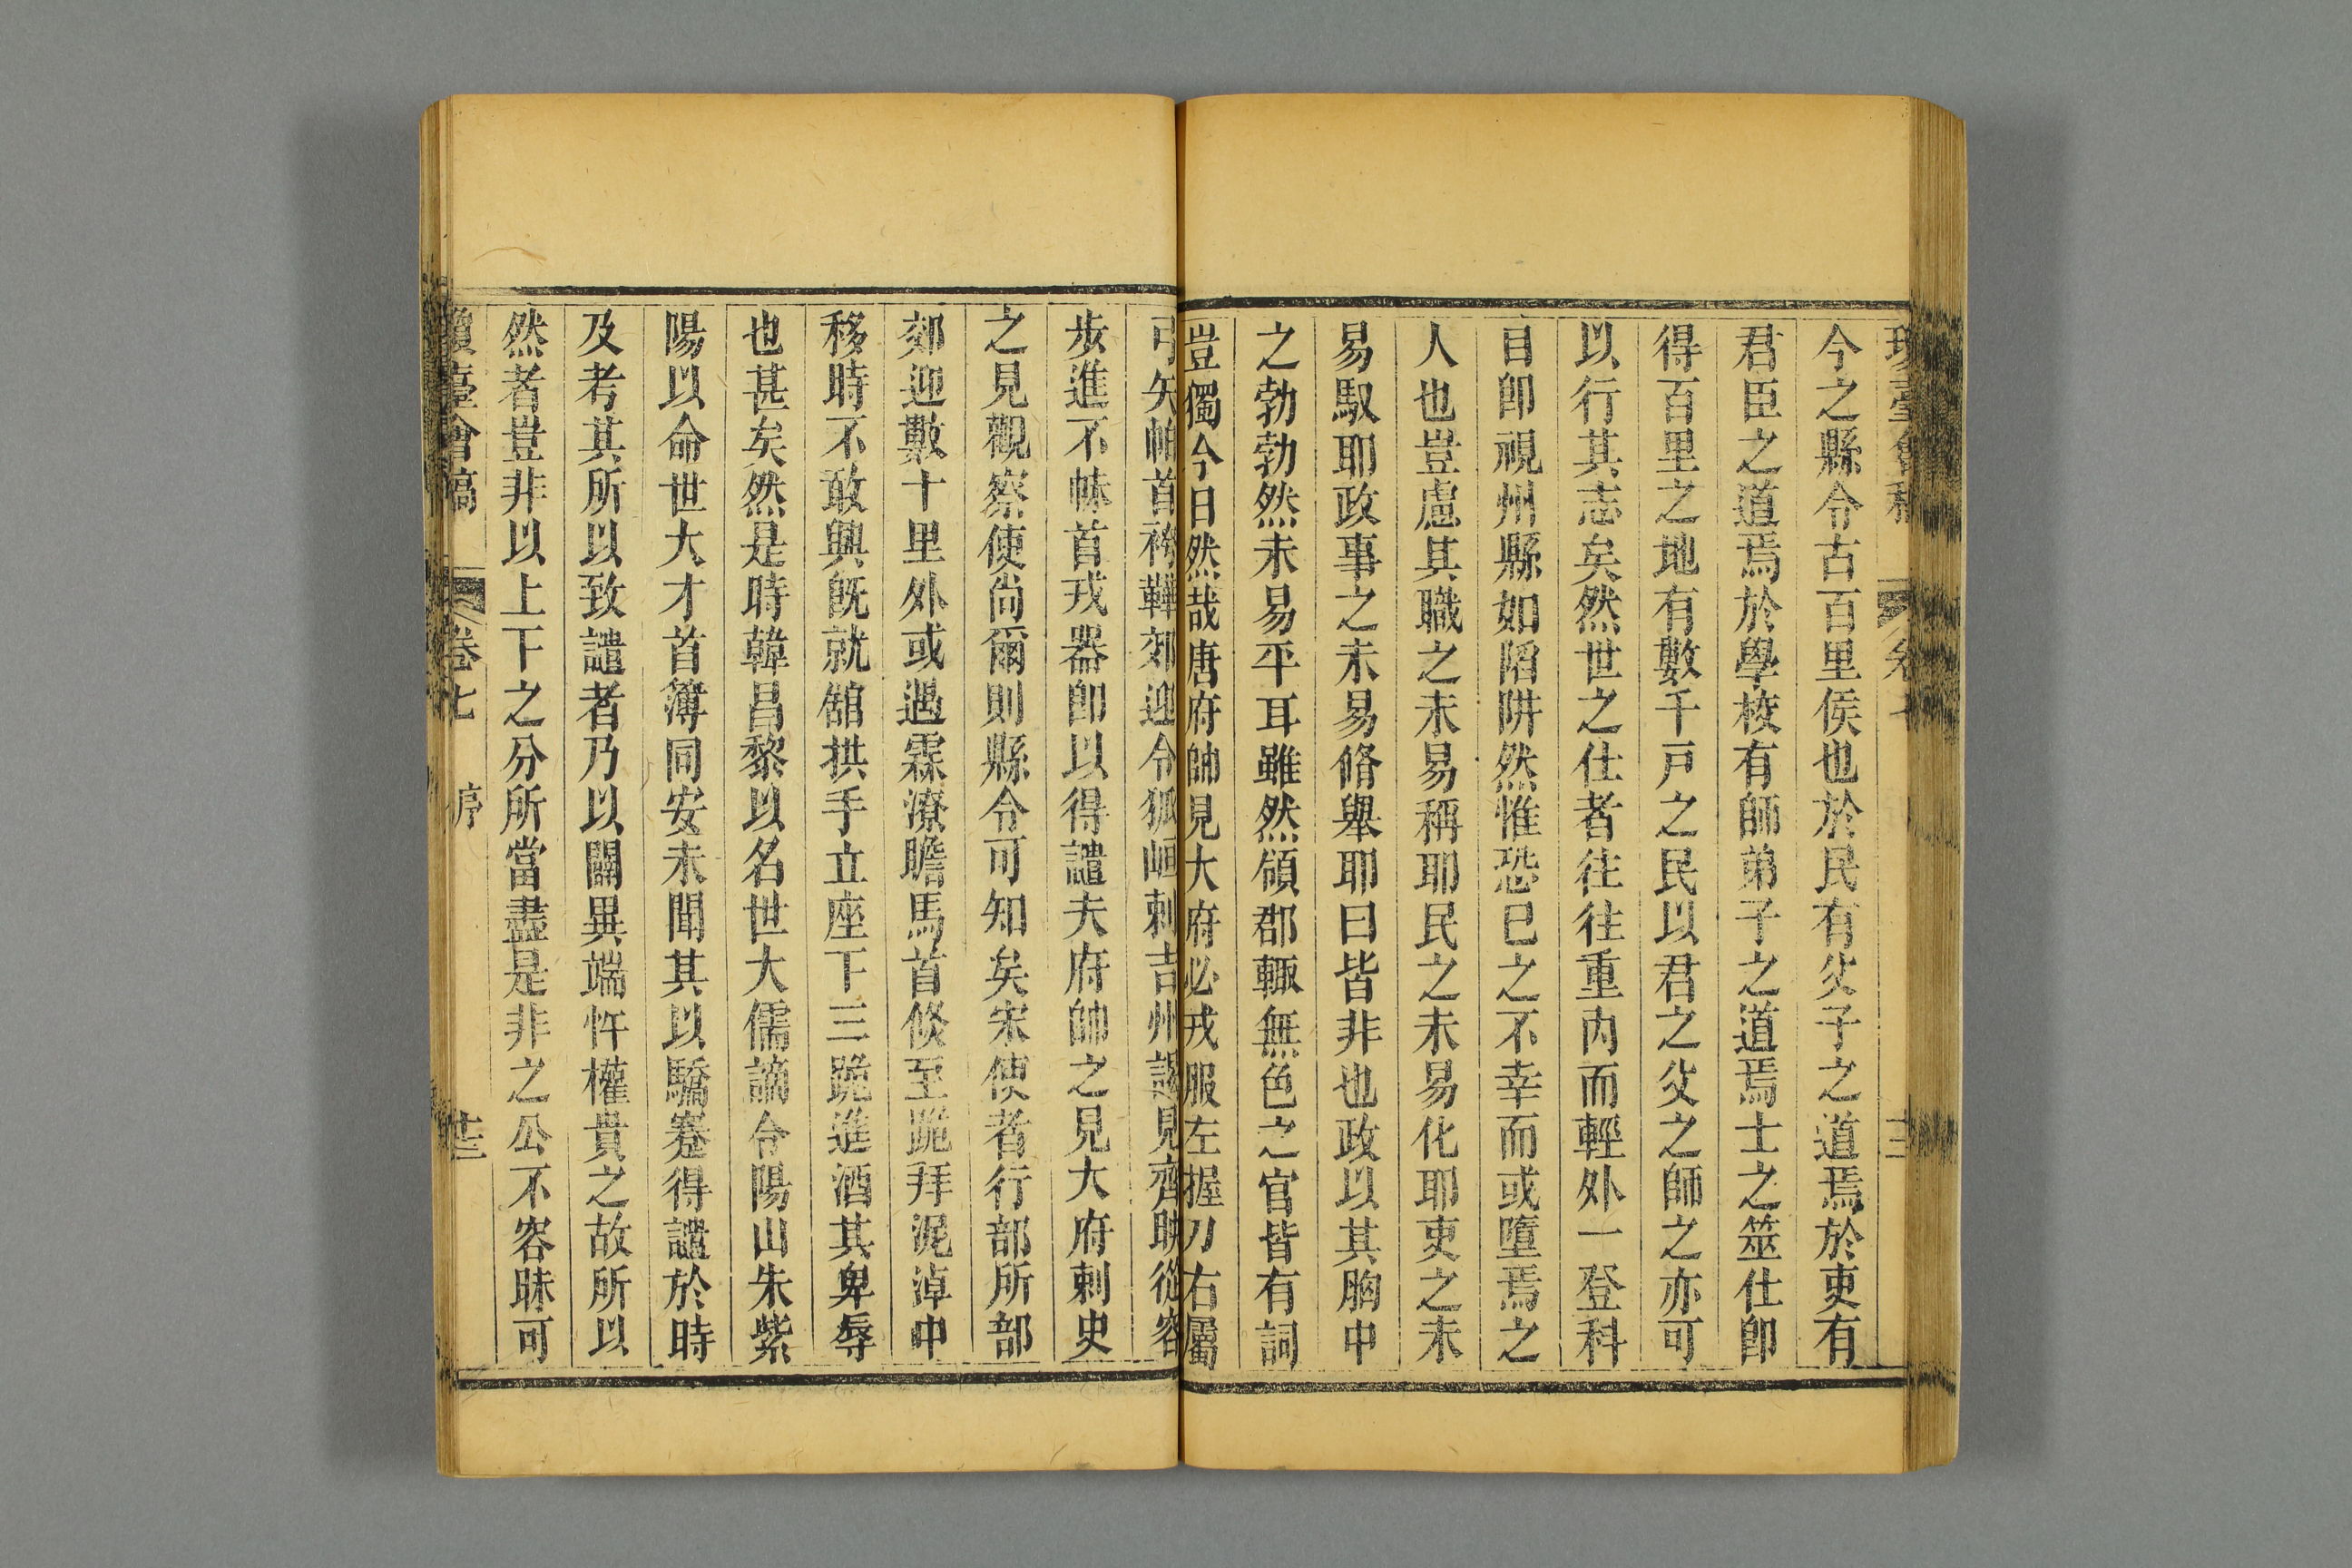 臺會稿
今之縣令古百里侯也於民有父子之道焉於吏有
君臣之道焉於學校有師弟子之道焉士之筮仕卽
得百里之地有數千戸之民以君之父之師之亦可
以行其志矣然世之仕者往往重內而輕外一登科
目卽視州縣如陷阱然惟恐已之不幸而或墮焉之
人也豈慮其職之未易稱耶民之未易化耶吏之未
易馭耶政事之未易脩舉耶曰皆非也政以其胸中
之勃勃然未易平耳雖然領郡輒無色之官皆有詞
豈獨今日然哉唐府帥見大府必戎服左握刀右屬
弓矢帕首袴鞾郊迎令狐峘刺吉州謁見齊映從容
步進不帓首戎器卽以得譴夫府帥之見大府刺史
之見觀察使尙爾則縣令可知矣宋使者行部所部
郊迎數十里外或遇霖潦瞻馬首倐至跪拜泥淖中
移時不敢興旣就舘拱手立座下三跪進酒其卑辱
也甚矣然是時韓昌黎以名世大儒謫令陽山朱紫
陽以命世大才首簿同安未聞其以驕蹇得譴於時
及考其所以致譴者乃以闢異端忤權貴之故所以
然者豈非以上下之分所當盡是非之公不容昧可
瓊臺會稿 卷七 序 十三